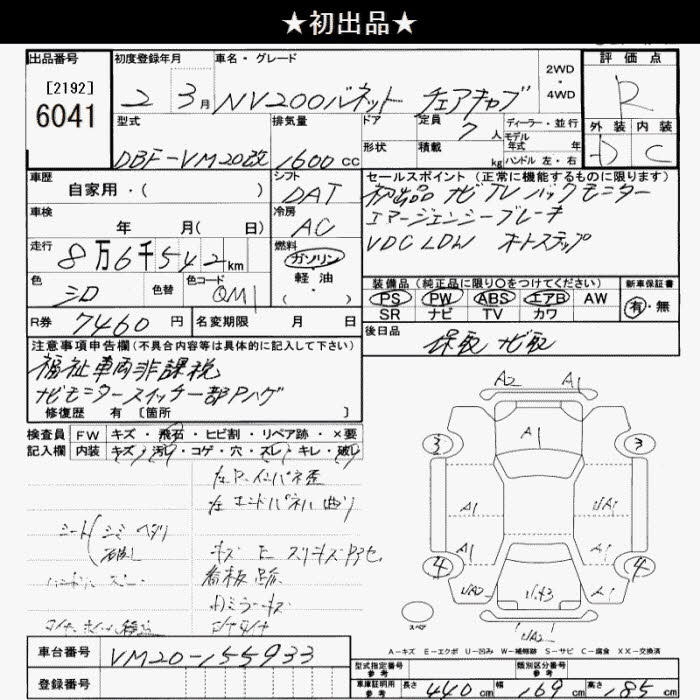 ★初出品★
出品番号 初度登録年月 車名・グレード 2WD・4WD 評価点
[2192]
6041 2 3月 NV200バネット チェアキャブ R
型式 排気量 ドア 定員 7人 ディーラー・並行 外装 内装
モデル年式 年
DBF-VM20改 1600cc 形状 積載 kg ハンドル 左・右 D C
車歴 シフト セールスポイント(正常に機能するものに限ります)
自家用・( ) DAT 初出品 ナビ TV バックモニター
車検 冷房 エマージェンシーブレーキ
年 月( 日) AC VDC LDW オートステップ
走行 燃料
8万6千542km ガソリン
軽油・( )
色 色替 色コード 装備品(純正品に限り○をつけてください) 新車保証書
シロ QM1 PS PW ABS エアB AW 有・無
SR ナビ TV カワ
R券 7460円 名変期限 月 日 後日品
保取 ナビ取
注意事項申告欄(不具合内容等は具体的に記入して下さい)
福祉車両非課税
ナビモニタースイッチ一部Pハゲ
修復歴 有 [箇所 ]
検査員記入欄 FW キズ・飛石・ヒビ割・リペア跡・×要
内装 キズ・汚レ・コゲ・穴・スレ・キレ・破レ
左エンドパネル曲り
シート シミ ヘタリ
看板跡
ハンドル スレ
A2 A1
A1
3 3
A1 A1
A1
4 4
A1
スペア
A-キズ E-エクボ U-凹み W-補修跡 S-サビ C-腐食 XX-交換済
車台番号 VM20-155933
登録番号
型式指定番号 参考 類別区分番号 参考
車庫証明用 参考 長さ 440cm 幅 169cm 高さ 185cm